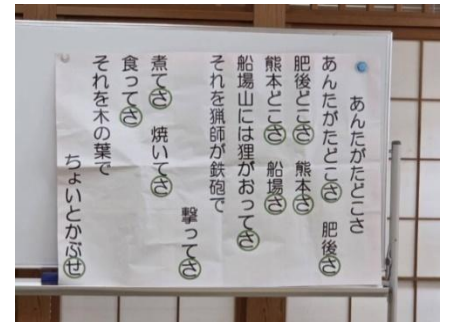 あんたがたどこさ
あんたがたどこさ 肥後さ
肥後どこさ 熊本さ
熊本どこさ 船場さ
船場山には狸がおってさ
それを猟師が鉄砲で
撃ってさ
煮てさ 焼いてさ
食ってさ
それを木の葉で
ちょいとかぶせ